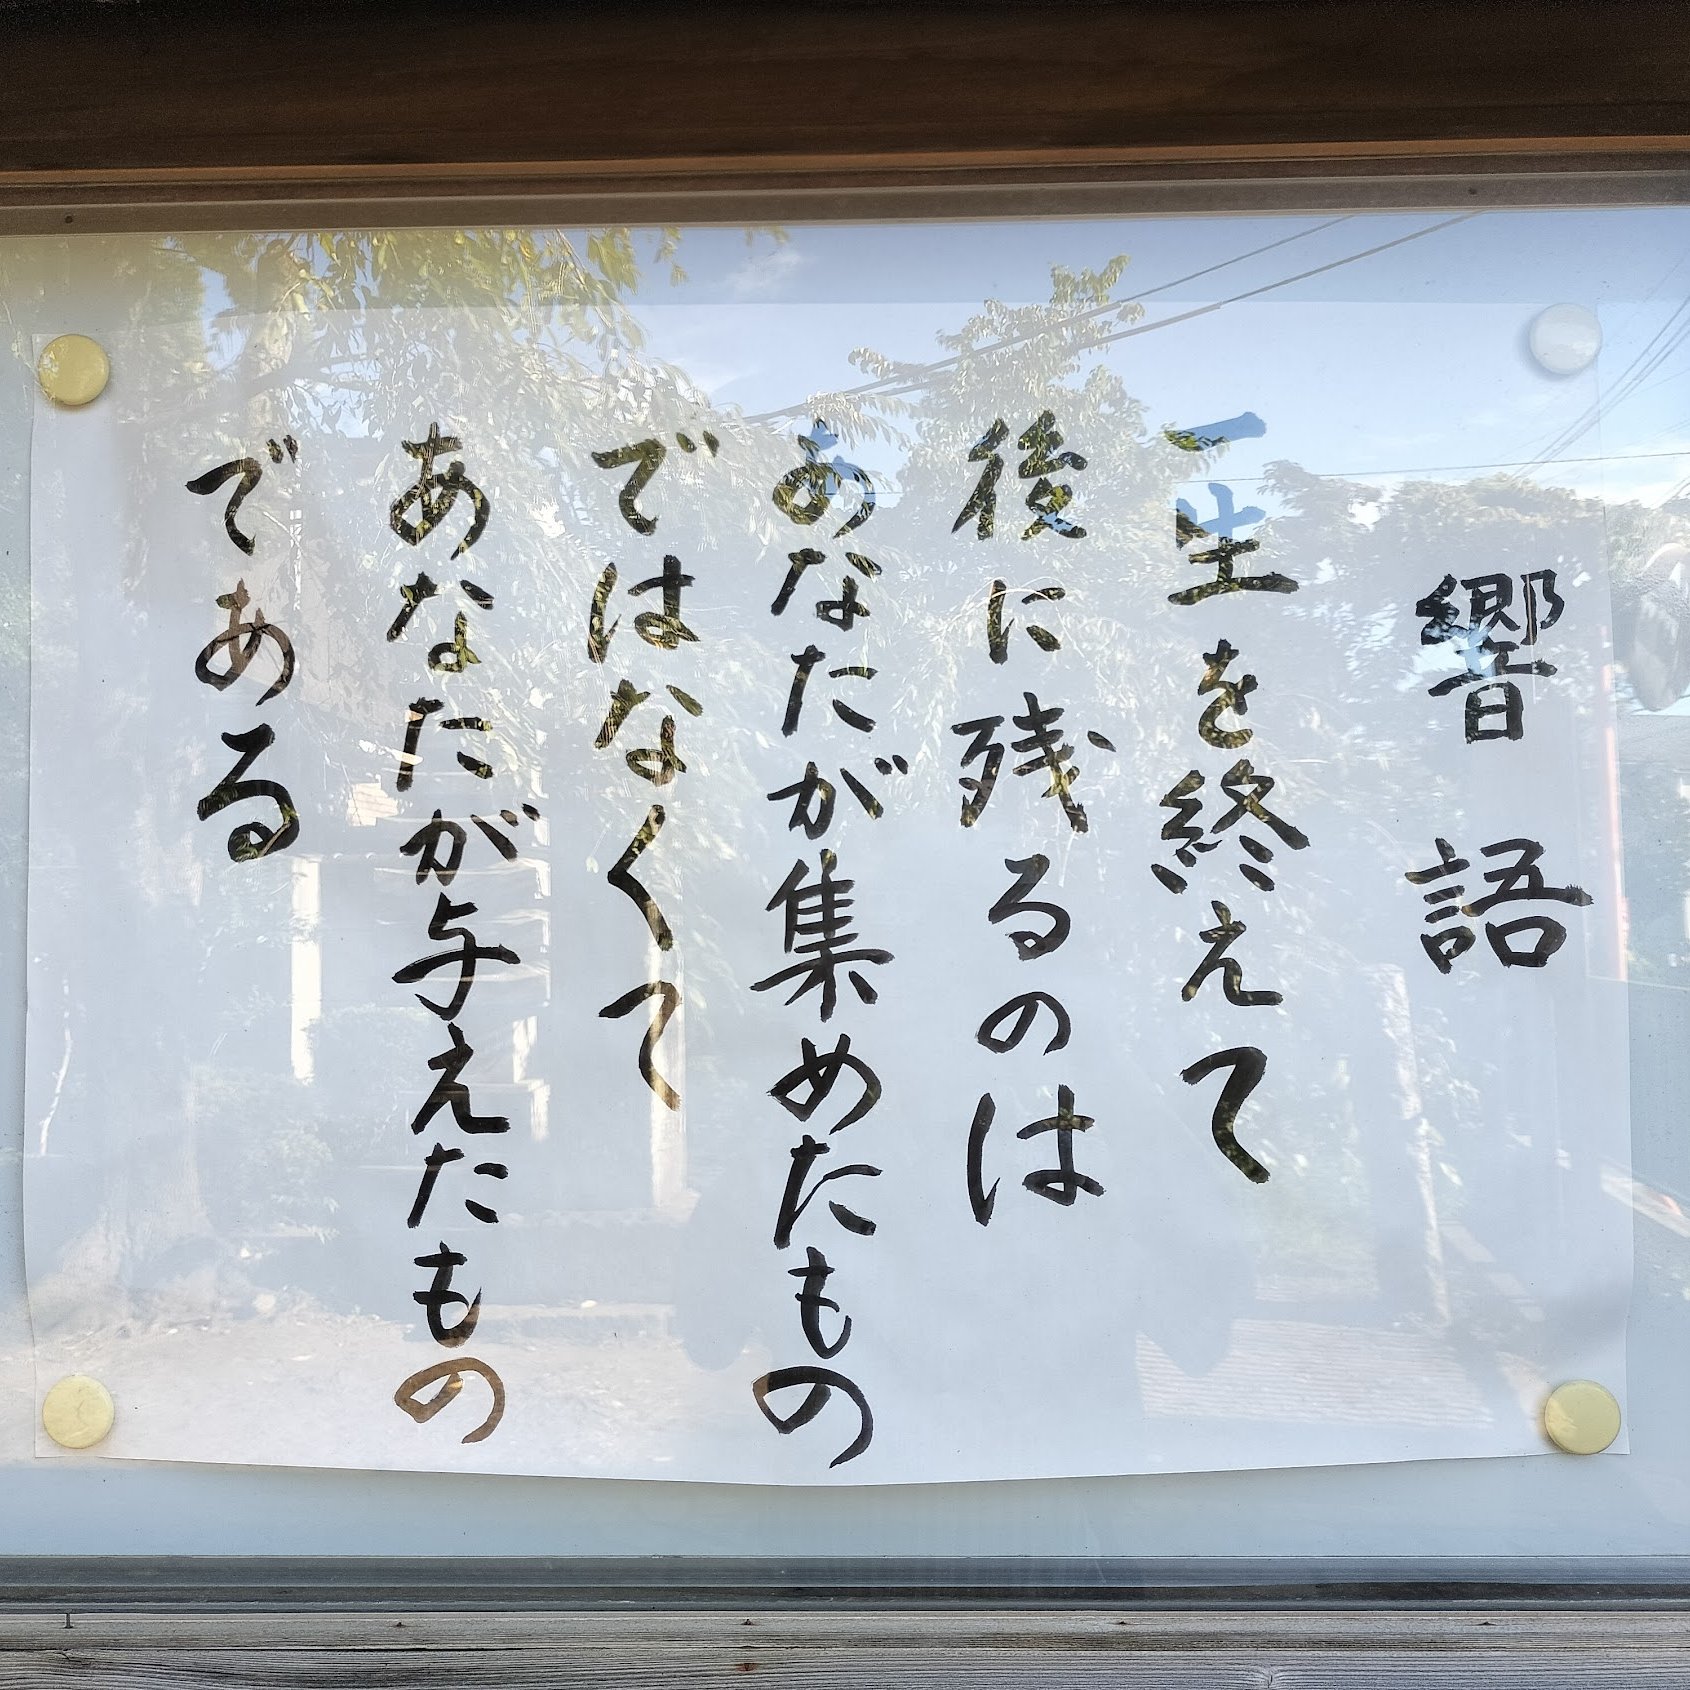 響語
一生を終えて
後に残るのは
あなたが集めたもの
ではなくて
あなたが与えたもの
である